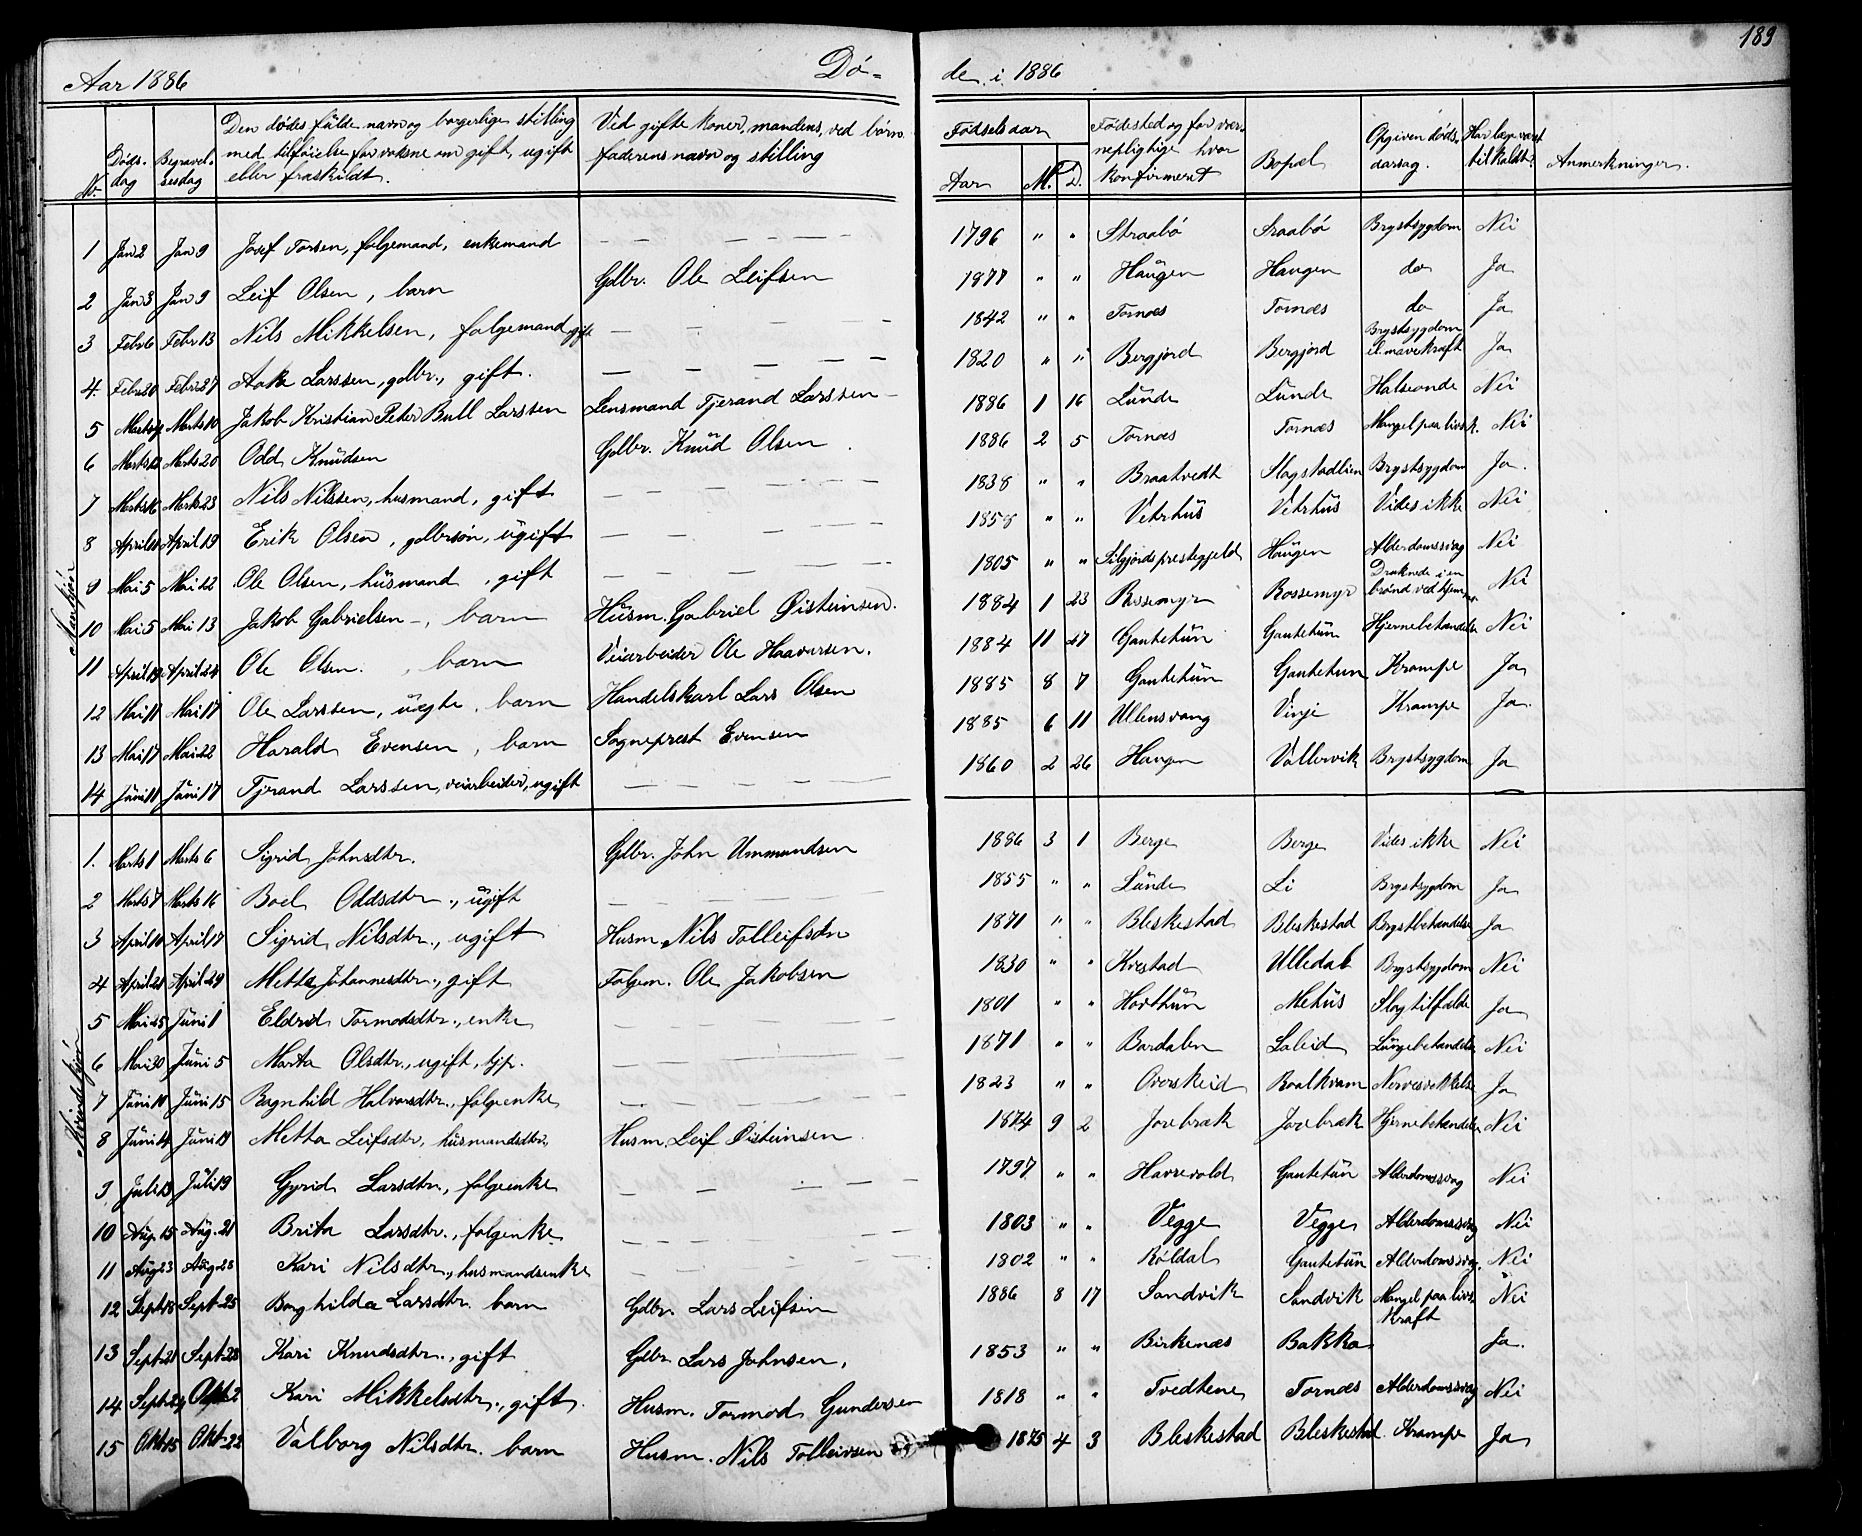 189
Aar 1886 Dø- de i 1886
No. Døds-dag Begravel-sesdag Den dødes fulde navn og borgerlige stilling med tilføielse for voksne om gift, ugift eller fraskildt. Ved gifte koner, mandens, ved børn faderens navn og stilling Fødselsaar Aar M. D. Fødested og for værnepligtige hvor konfirmeret Bopæl Opgiven dødsaarsag. Har læge vært tilkaldt? Anmerkninger.
Mankjøn
1 Jan 2 Jan 9 Josef Torsen, følgemand, enkemand — — — — 1796 " " Straabø Sraabø Brystsygdom Nei
2 Jan 3 Jan 9 Leif Olsen, barn Gdbr. Ole Leifsen 1877 " " Haugen Haugen do Ja
3 Febr 6 Febr 13 Nils Mikkelsen, følgemand gift — — — — 1842 " " Tornæs Tornæs do Ja
4. Febr 20 Febr 27 Aake Larssen, gdbr., gift. — — — — 1820 " " Bergjord Bergjord Brystsygdom el. mavekræft Ja
5 Marts Marts 10 Jakob Kristian Peter Bull Larssen Lensmand Tjerand Larssen 1886 1 16 Lunde Lunde Halseonde Nei
6 Marts 13 Marts 20 Odd Knudsen Gdbr. Knud Olsen 1886 2 5 Tornæs Tornæs Mangel paa livsk. Nei
7 Marts 16 Marts 23 Nils Nilssen, husmand, gift — — — — 1838 " " Braatvedt Slagstadlien Brystsygdom Ja.
8 April April 19 Erik Olsen, gdbrsøn, ugift — — — — 1858 " " Vetrhus Vetrhus Vides ikke Nei
9 Mai 5 Mai 12 Ole Olsen, husmand, gift — — — — 1805 " " Silgjords prestegjeld Haugen Alderdomssvag Nei
10 Mai 5 Mai 13 Jakob Gabrielsen, barn Husm. Gabriel Øisteinsen. 1884 1 23 Rossemyr Rossemyr Druknede i en brønd ved hjem Nei
11 April 19 April 24 Ole Olsen, barn Veiarbeider Ole Haavarsen. 1884 11 27 Gautetun Gautetun Hjernebetændelse Nei
12 Mai 11 Mai 17 Ole Larssen, uægte, barn Handelskarl Lars Olsen 1885 8 7 Gautetun Gautetun Krampe Ja
13 Mai 17 Mai 22 Harald Evensen, barn Sogneprest Evensen 1885 6 11 Ullensvang Vinje Krampe Ja.
14 Juni 11 Juni 17 Tjerand Larssen, veiarbeider, ugift — — — — 1860 2 26 Haugen Vallervik Brystsygdom Ja
Kvindekjøn
1. Marts 1 Marts 6 Sigrid Johnsdtr. Gdbr. John Ummundsen 1886 3 1 Berge Berge Vides ikke Nei
2 Marts 7 Marts 16 Boel Oddsdtr., ugift — — — — 1855 " " Lunde Li Brystsygdom Ja
3 April 10 April 17 Sigrid Nilsdtr., ugift Husm. Nils Tolleifsen 1871 " " Bleskestad Bleskestad Brystbetændelse Ja
4 April 21 April 29 Metta Johannesdtr., gift Følgem. Ole Jakobsen 1830 " " Kvestad Ulledal Brystsygdom Nei
5 Mai 25 Juni 1 Eldrid Tormodsdtr., enke — — — — 1801 " " Horthun Mehus Slagtilfælde Ja
6 Mai 30 Juni 5 Marta Olsdtr., ugift, tjp. — — — — 1871 " " Bardalen Laleid Lungebetændelse Nei
7 Juni 10 Juni 15 Ragnhild Halvorsdtr., følgeenke — — — — 1823 " " Overskeid Roalkvam Nervesvækkelse Ja
8 Juni 14 Juni 19 Metta Leifsdtr, husmandsdtr, Husm. Leif Øisteinsen 1874 9 2 Jorebræk Jorebræk Hjernebetændelse Nei
9 Juli 13 Juli 19 Gyrid Larsdtr., følgeenke — — — — 1797 " " Havrevold Gautetun Alderdomssvag Nei
10 Aug. 15 Aug. 21 Brita Larsdtr., følgenke — — — — 1803 " " Vegge Vegge Alderdomssvag Nei
11 Aug 23 Aug 28 Kari Nilsdtr., husmandsenke — — — — 1802 " " Røldal Gautetun Alderdomssvag. Nei
12 Sept 18 Sept 25 Borghilda Larsdtr. barn Gdbr. Lars Leifsen 1886 8 17 Sandvik Sandvik Mangel paa livskraft Nei
13 Sept 21 Sept 28 Kari Knudsdtr., gift Gdbr. Lars Johnsen, 1853 " " Birkenæs Bakka Ja.
14 Sept 24 Okt 2 Kari Mikkelsdtr., gift. Husm. Tormod Gundersen 1818 " " Tvedtene Tornæs Alderdomssvag Nei
15 Okt 15 Okt 22 Valborg Nilsdtr. barn Husm. Nils Tolleivsen 1875 4 3 Bleskestad Bleskestad. Krampe Ja